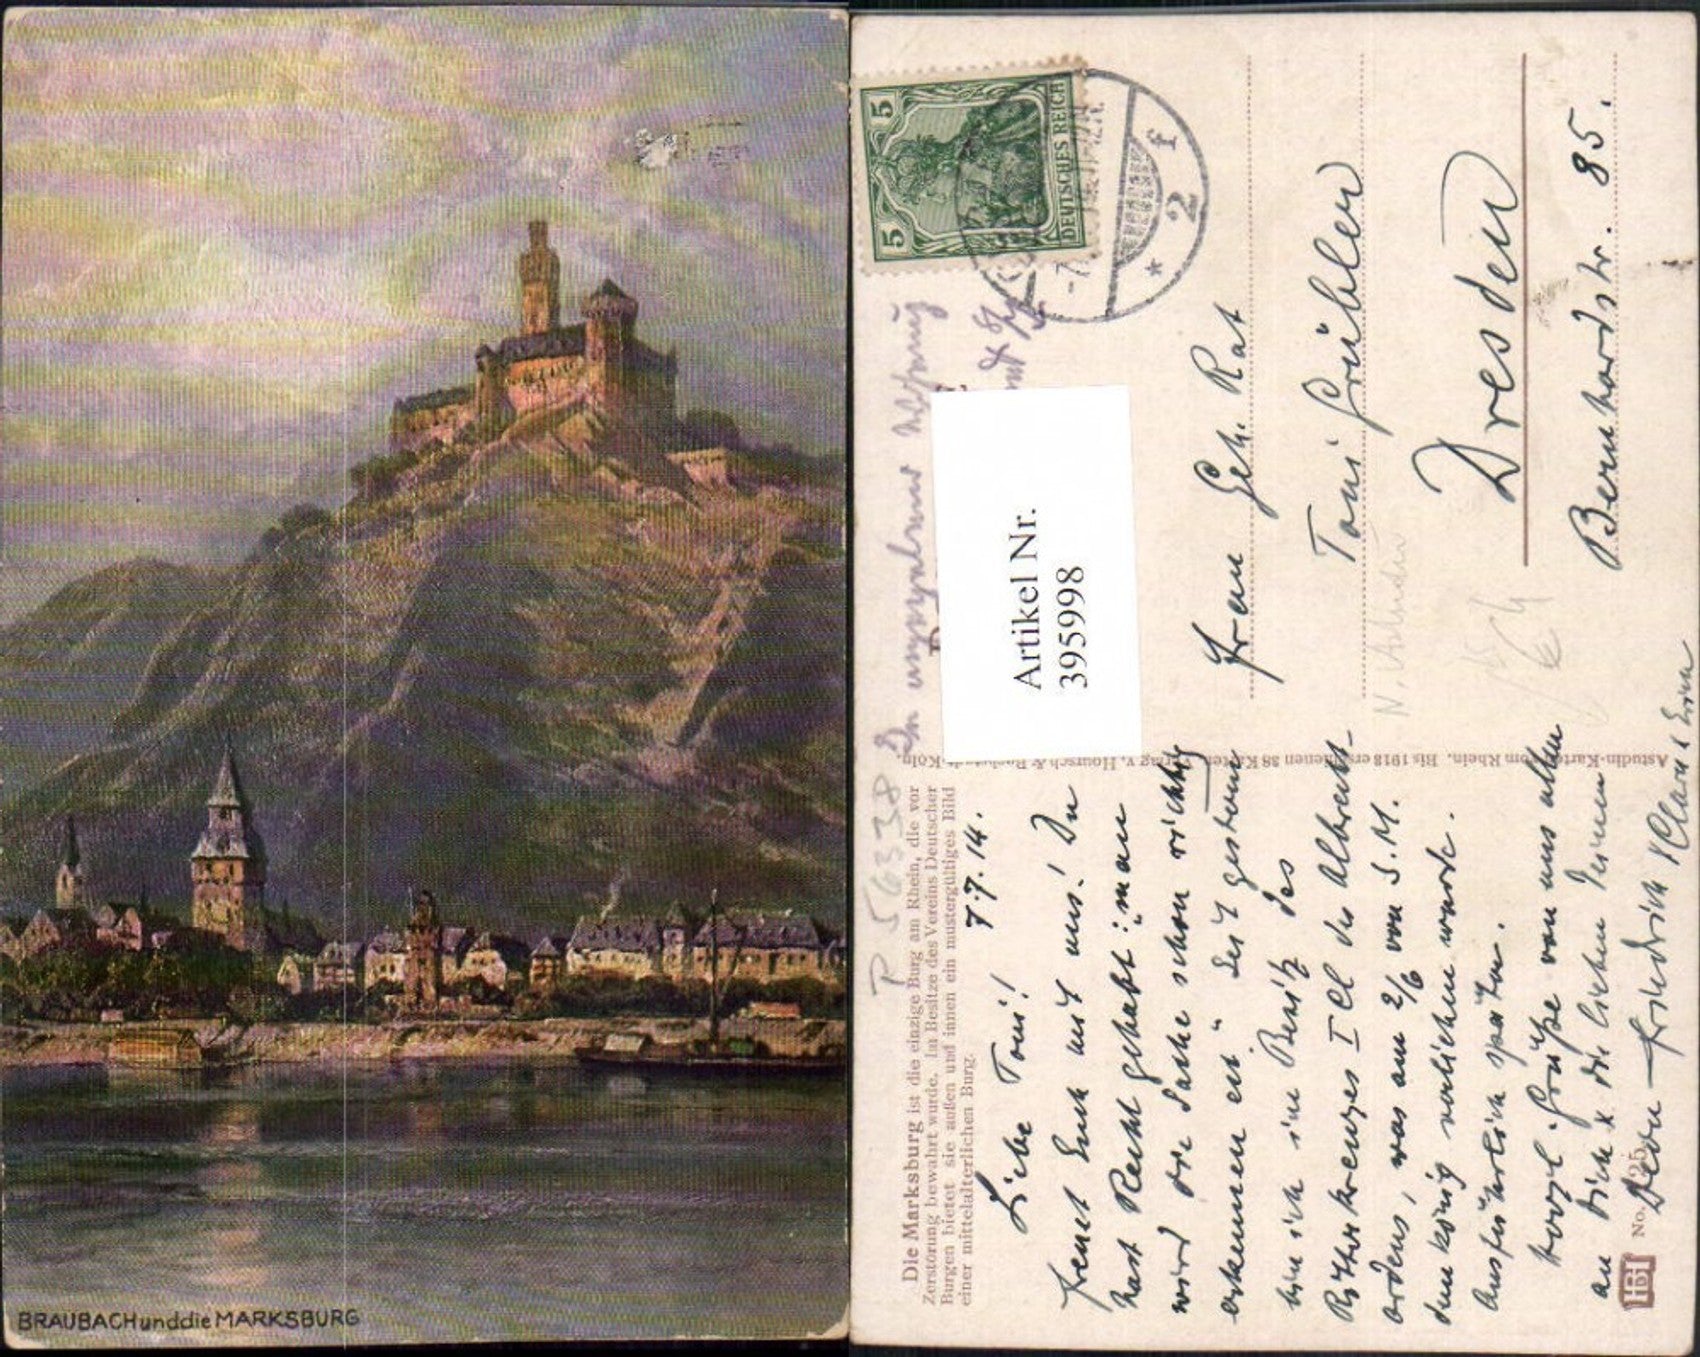 BRAUBACH und die MARKSBURG
5 5
DEUTSCHES REICH
2 f
Artikel Nr.
395998
P 56338
Die Marksburg ist die einzige Burg am Rhein, die vor
Zerstörung bewahrt wurde. Im Besitze des Vereins Deutscher
Burgen bietet sie außen und innen ein mustergültiges Bild
einer mittelalterlichen Burg.
7.7.14.
Liebe Toni!
Freut Euch mit uns! Du
hast Recht gehabt: "man
wird die Sache schon richtig
erkennen etc." Seit gestern
bin ich im Besitz des
Ritterkreuzes I Cl des Albrechts-
ordens, was am 2/6 von S.M.
dem König verliehen wurde.
Ausführlich später.
Herzl. Grüße von uns allen
an Dich & die lieben Deinen
Dein Friedrich
Astudin-Karten vom Rhein. Bis 1918 erschienen 38 Karten. Verlag v. Hoursch & Bechstedt, Köln
HB
No. 25
Frau Geh. Rat
Toni Grühlen
Dresden
Bernhardstr. 85.
N. Astudin